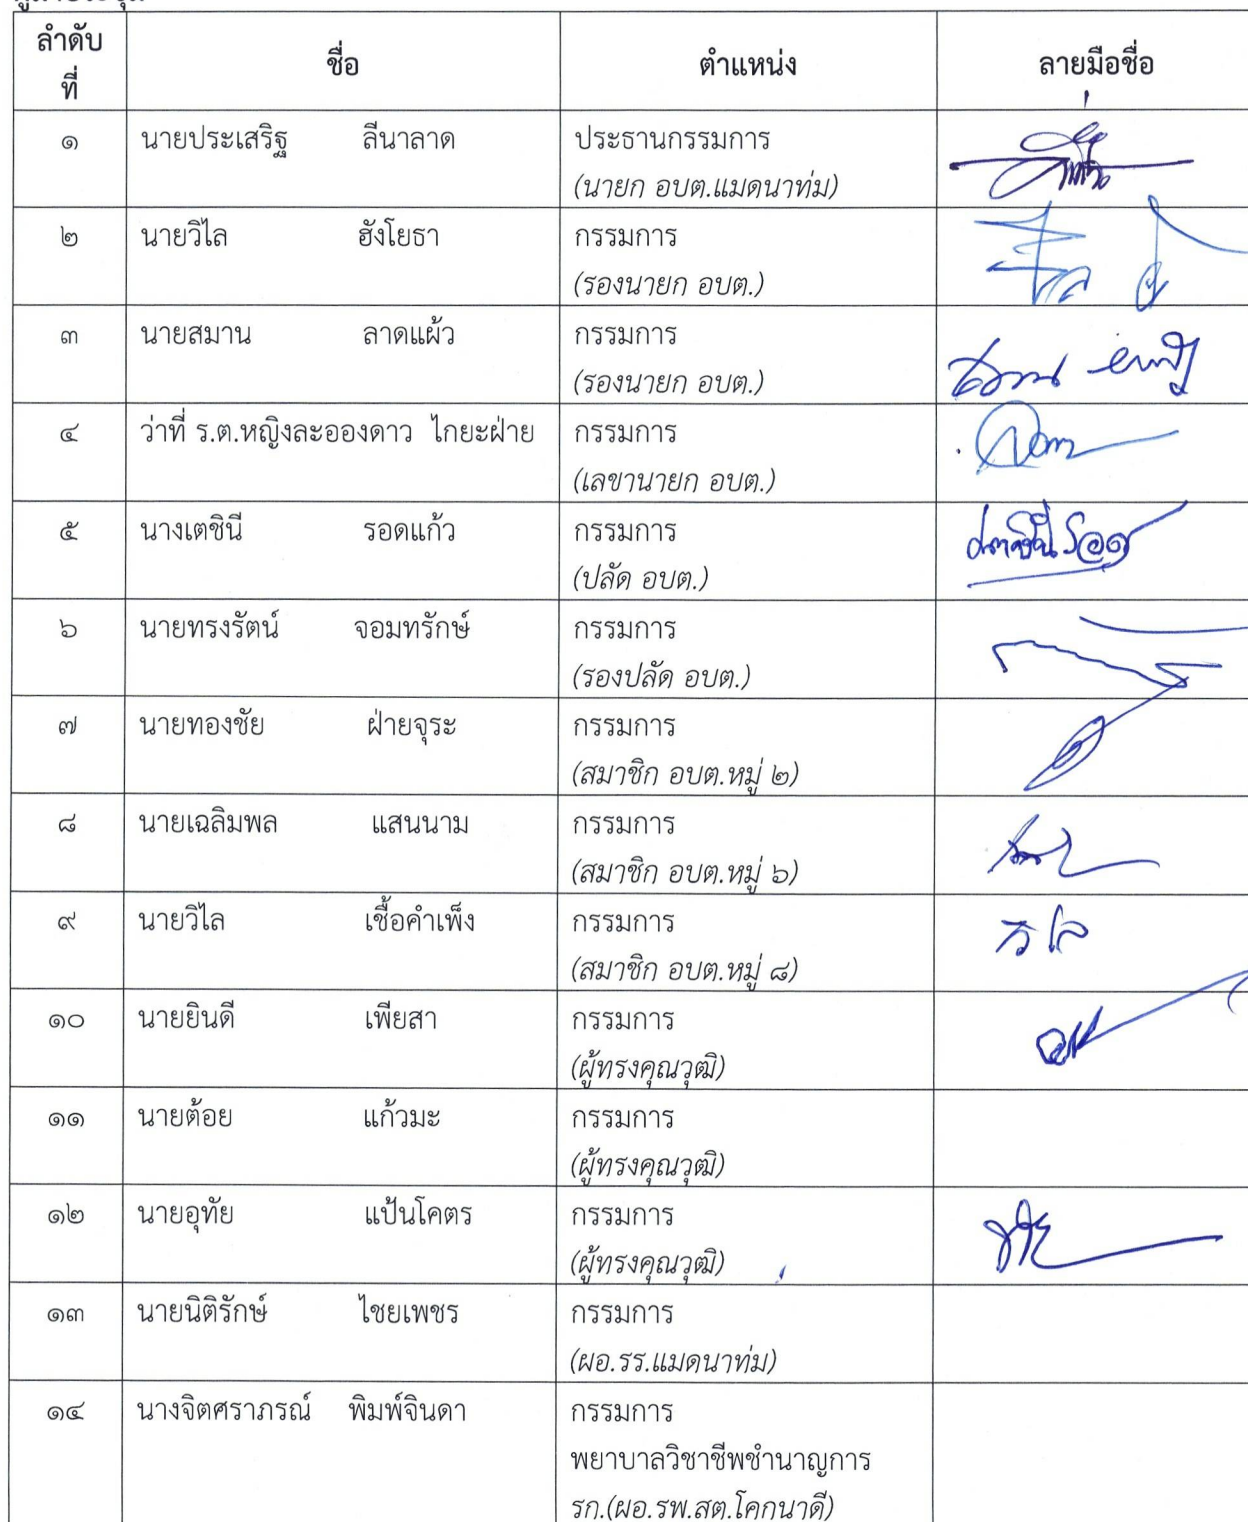 ลำดับ
ที่
ชื่อ
ตำแหน่ง
ลายมือชื่อ
๑ นายประเสริฐ ลีนาลาด ประธานกรรมการ
(นายก อบต.แมดนาท่ม)
๒ นายวิไล ฮังโยธา กรรมการ
(รองนายก อบต.)
๓ นายสมาน ลาดแผ้ว กรรมการ
(รองนายก อบต.)
๔ ว่าที่ ร.ต.หญิงละอองดาว ไกยะฝ่าย กรรมการ
(เลขานายก อบต.)
๕ นางเตชินี รอดแก้ว กรรมการ
(ปลัด อบต.)
๖ นายทรงรัตน์ จอมทรักษ์ กรรมการ
(รองปลัด อบต.)
๗ นายทองชัย ฝ่ายจุระ กรรมการ
(สมาชิก อบต.หมู่ ๒)
๘ นายเฉลิมพล แสนนาม กรรมการ
(สมาชิก อบต.หมู่ ๖)
๙ นายวิไล เชื้อคำเพ็ง กรรมการ
(สมาชิก อบต.หมู่ ๘)
วิไล
๑๐ นายยินดี เพียสา กรรมการ
(ผู้ทรงคุณวุฒิ)
๑๑ นายต้อย แก้วมะ กรรมการ
(ผู้ทรงคุณวุฒิ)
๑๒ นายอุทัย แป้นโคตร กรรมการ
(ผู้ทรงคุณวุฒิ)
๑๓ นายนิติรักษ์ ไชยเพชร กรรมการ
(ผอ.รร.แมดนาท่ม)
๑๔ นางจิตศราภรณ์ พิมพ์จินดา กรรมการ
พยาบาลวิชาชีพชำนาญการ
รก.(ผอ.รพ.สต.โคกนาดี)